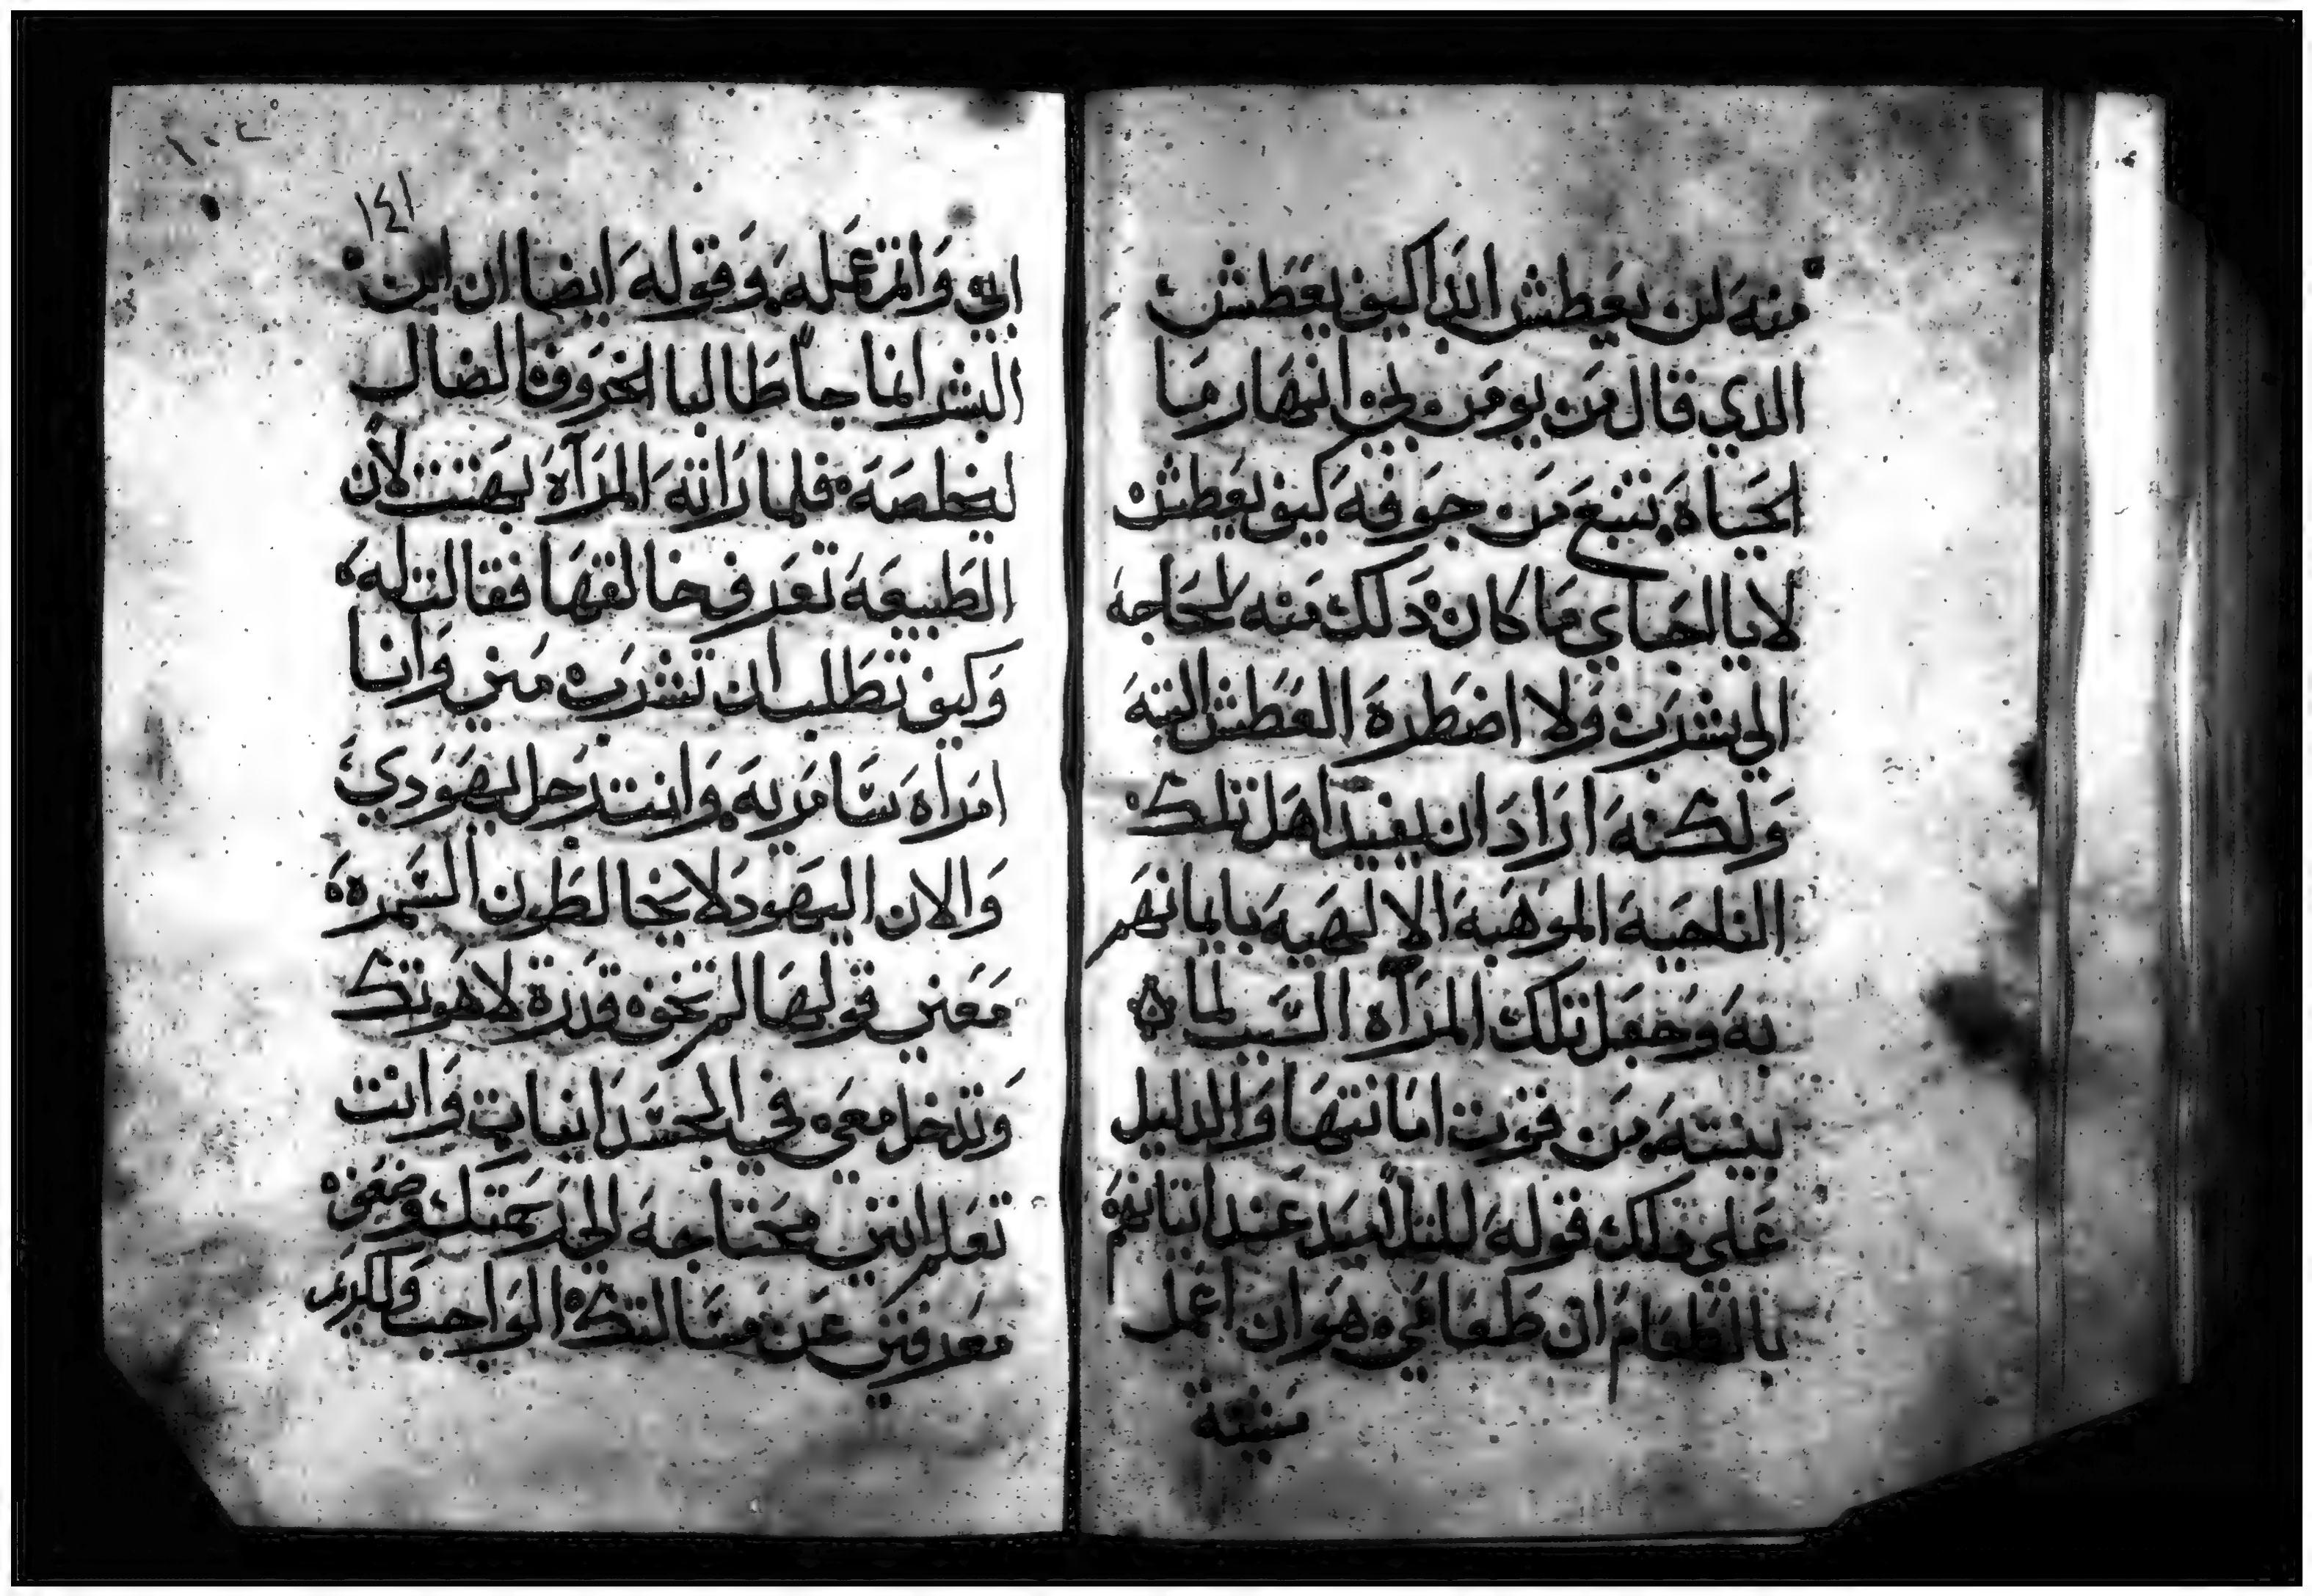 منه لن يعطش ابدا كيف يعطش
الدي قال من يومن بي انهار ما
الحياة تنبع من جوفه كيف يعطش
لا يا احباي ما كان دلك منه لحاجه
الي شرب ولا اضطره العطش البته
ولكنه اراد ان يفيد اهل تلك
الناحية الموهبة الالهية بايمانهم
به وجعل تلك المرآه السبب لما
بينته من قوت امانتها والدليل
علي دلك قوله للتلاميد عند اتيانهم
بالطعام ان طعامي هو ان اعمل
مشية
١٤١
ابي واتم عمله وقوله ايضا ان ابن
البشر انما جا طالبا الخروف الضال
ليخلصه فلما راته المرآه بهتت لان
الطبيعة تعرف خالقها فقالت له
وكيف تطلب ان تشرب مني وانا
امراه سامرية وانت رجل يهودي
والان اليهود لا يخالطون السمرة
معني قولها لم تخف قدرة لاهوتك
وتدخل معي في الجسدانيات وانت
تعلم انني محتاجة الي رحمتك وضعف
معرفتي عن مسالتك الواجب والكريم